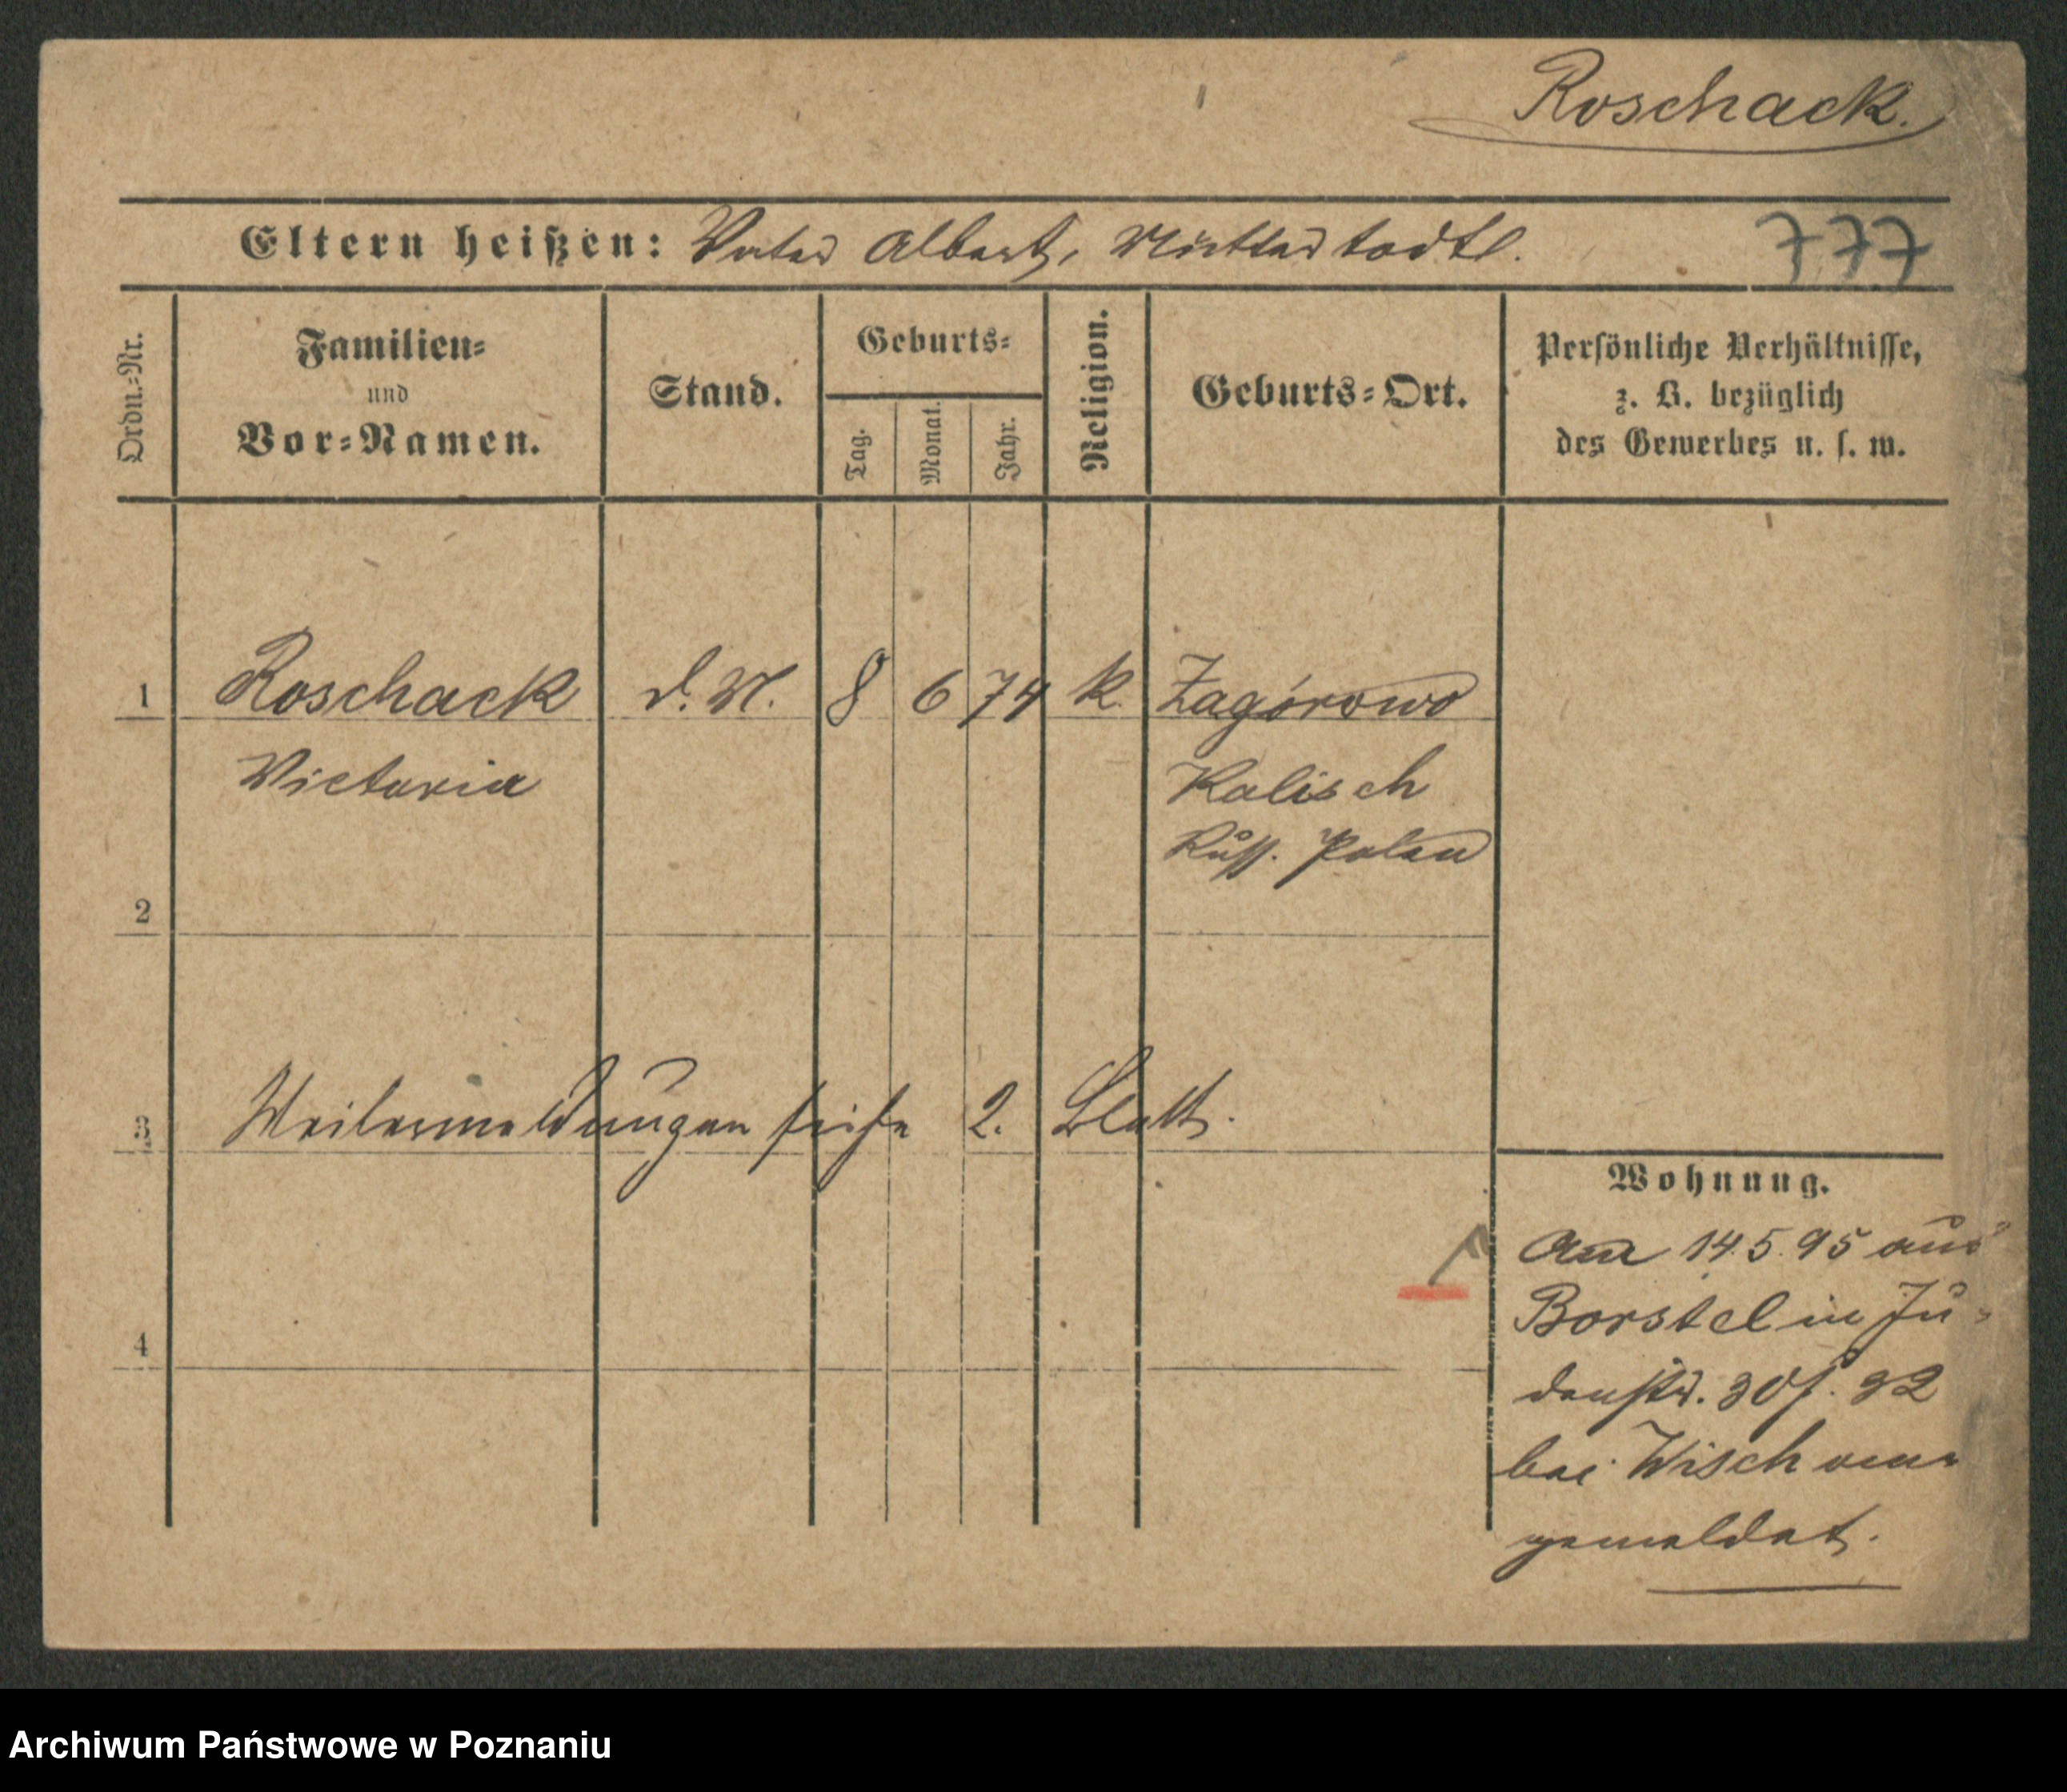 Roschack.
Eltern heißen: Vater Albert, Mutter todt.
777
Ordn.-Nr.
Familien-
und
Vor-Namen.
Stand.
Geburts-
Tag.
Monat.
Jahr.
Religion.
Geburts-Ort.
Persönliche Verhältnisse,
z. B. bezüglich
des Gewerbes u. s. w.
1 Roschack d. M. 8 6 74 k. Zagórowo
Victoria Kalisch
Russ. Polen
2
3 Weitermeldungen siehe 2. Blatt.
4
Wohnung.
Am 14.5.95 aus
Borstel in Ju-
denstr. 30
bei Wisch an-
gemeldet.
Archiwum Państwowe w Poznaniu